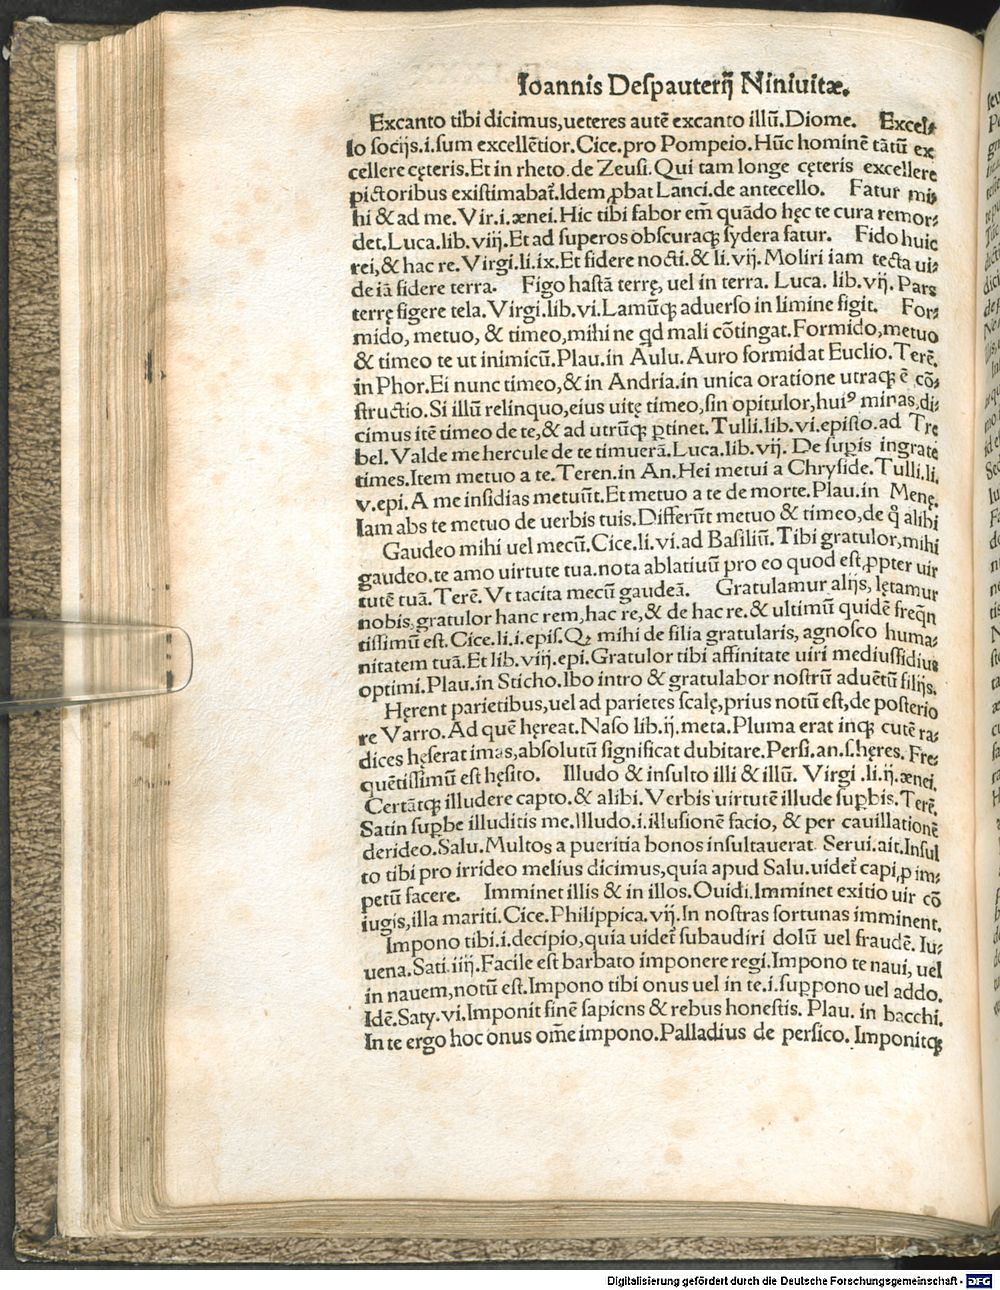 Ioannis Despauterij Niniuitæ.
Excanto tibi dicimus,ueteres autē excanto illū.Diome. Excel⸗
lo socijs.i.sum excellētior.Cice.pro Pompeio.Hūc hominē tātū ex
cellere cęteris.Et in rheto.de Zeusi.Qui tam longe cęteris excellere
pictoribus existimabat̄.Idem ꝓbat Lanci.de antecello. Fatur mi⸗
hi & ad me.Vir.i.ænei.Hic tibi fabor em̄ quādo hęc te cura remor⸗
det.Luca.lib.viij.Et ad superos obscuraqꝫ sydera fatur. Fido huic
rei,& hac re.Virgi.li.ix.Et fidere nocti.& li.vij.Moliri iam tecta ui⸗
de iā fidere terra. Figo hastā terrę, uel in terra. Luca. lib.vij. Pars
terrę figere tela.Virgi.lib.vi.Lamūqꝫ aduerso in limine figit. For⸗
mido, metuo, & timeo,mihi ne qd mali cōtingat.Formido,metuo
& timeo te ut inimicū.Plau.in Aulu.Auro formidat Euclio.Terē.
in Phor.Ei nunc timeo,& in Andria.in unica oratione utraqꝫ ē cō⸗
structio.Si illū relinquo,eius uitę timeo,sin opitulor,huiꝰ minas,di⸗
cimus itē timeo de te,& ad utrūqꝫ ꝑtinet.Tulli.lib.vi.episto.ad Tre
bel.Valde me hercule de te timuerā.Luca.lib.vij. De suꝑis ingrate
times.Item metuo a te.Teren.in An.Hei metui a Chryside.Tulli.li.
v.epi.A me insidias metuūt.Et metuo a te de morte.Plau.in Menę.
Iam abs te metuo de uerbis tuis.Differūt metuo & timeo,de q̊ alibi
Gaudeo mihi uel mecū.Cice.li.vi.ad Basiliū.Tibi gratulor,mihi
gaudeo.te amo uirtute tua.nota ablatiuū pro eo quod est,ꝓpter uir
tutē tuā.Terē.Vt tacita mecū gaudeā. Gratulamur alijs, lętamur
nobis,gratulor hanc rem,hac re,& de hac re.& ultimū quidē freqn̄
tissimū est.Cice.li.i.epis.Qꝫ mihi de filia gratularis, agnosco huma⸗
nitatem tuā.Et lib.viij.epi.Gratulor tibi affinitate uiri mediussidius
optimi.Plau.in Sticho.Ibo intro & gratulabor nostrū aduētū filijs.
Hęrent parietibus,uel ad parietes scalę,prius notū est,de posterio
re Varro.Ad quē hęreat.Naso lib.ij.meta.Pluma erat inqꝫ cutē ra⸗
dices hęserat imas,absolutū significat dubitare.Persi.an.s.hęres. Fre⸗
quētissimū est hęsito. Illudo & insulto illi & illū. Virgi .li.ij.ænei.
Certātqꝫ illudere capto.& alibi.Verbis uirtutē illude suꝑbis.Terē.
Satin suꝑbe illuditis me.Illudo.i.illusionē facio, & per cauillationē
derideo.Salu.Multos a pueritia bonos insultauerat. Serui.ait.Insul
to tibi pro irrideo melius dicimus,quia apud Salu.uidet̄ capi,ꝓ im⸗
petū facere. Imminet illis & in illos.Ouidi.Imminet exitio uir cō
iugis,illa mariti.Cice.Philippica.vij.In nostras fortunas imminent.
Impono tibi.i.decipio,quia uidet̄ subaudiri dolū uel fraudē. Iu⸗
uena.Sati.iiij.Facile est barbato imponere regi.Impono te naui, uel
in nauem,notū est.Impono tibi onus uel in te.i.suppono uel addo.
Idē.Saty.vi.Imponit finē sapiens & rebus honestis. Plau. in bacchi.
In te ergo hoc onus om̄e impono.Palladius de persico. Imponitqꝫ
Digitalisierung gefördert durch die Deutsche Forschungsgemeinschaft - DFG